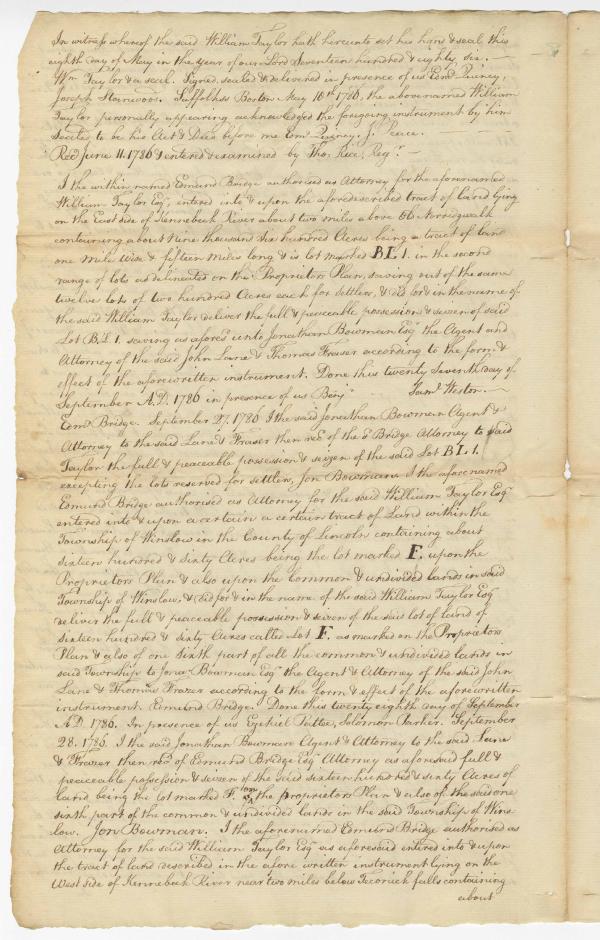 In witness whereof the said William Taylor hath hereunto set his hand & seal this
eighth day of May in the year of our Lord Seventeen hundred & eighty six.—
Wm Taylor & a seal. Signed, sealed & delivered in presence of us Edmd Quincy,
Joseph Stanwood. Suffolk ss Boston May 16th 1786, the abovenamed William
Taylor personally appearing acknowledged the foregoing instrument by him
Sealed to be his Act & Deed before me Edm Quincy. J. Peace.
Recd June 11. 1786 & entered & examined by Tho. Rice, Regr.—
I the within named Edmund Bridge authorised as Attorney for the aforenamed
William Taylor Esqr, entered into & upon the aforedescribed tract of land lying
on the East side of Kennebeck River about two miles above Old Norridgwalk
containing about Nine thousand Six hundred Acres being a tract of land
one mile wide & fifteen miles long & is lot marked B.L. 1. in the second
range of lots as delineated on the Proprietors Plan, saving out of the same
twelve lots of two hundred Acres each for settlers, & did for & in the name of
the said William Taylor deliver the full & peaceable possession & seizen of said
Lot B.L. 1. saving as aforesd unto Jonathan Bowman Esqr the Agent and
Attorney of the said John Lane & Thomas Fraser according to the form &
effect of the aforewritten instrument. Done this twenty Seventh day of
September A.D. 1786 in presence of us Benj Saml Weston.—
Edmd Bridge. September 27. 1786 I the said Jonathan Bowman Agent &
Attorney to the said Lane & Fraser then recd of the sd Bridge Attorney to said
Taylor the full & peaceable possession & seizen of the said Lot B L. 1.
excepting the lots reserved for settlers, Jon Bowman. I the aforenamed
Edmund Bridge authorised as Attorney for the said William Taylor Esqr
entered into & upon a certain a certain tract of Land within the
Township of Winslow in the County of Lincoln containing about
Sixteen hundred & sixty Acres being the lot marked F. upon the
Proprietors Plan & also upon the Common & undivided lands in said
Township of Winslow, & did for & in the name of the said William Taylor Esqr
deliver the full & peaceable possession & seizen of the said lot of land of
sixteen hundred & sixty Acres called Lot F. as marked on the Proprietors
Plan & also of one sixth part of all the common & undivided lands in
said Township to Jona Bowman Esqr the Agent & Attorney of the said John
Lane & Thomas Frazer according to the form & effect of the aforewritten
instrument. Edmund Bridge. Done this twenty eighth day of September
A.D. 1786. In presence of us Ezekiel Pattee, Solomon Parker. September
28. 1786. I the said Jonathan Bowman Agent & Attorney to the said Lane
& Frazer then recd of Edmund Bridge Esqr Attorney as aforesaid full &
peaceable possession & seizen of the said sixteen hundred & sixty Acres of
land being the lot marked F. on the proprietors Plan & also of the said one
sixth part of the common & undivided lands in the said Township of Wins
low. Jon Bowman. I the aforenamed Edmund Bridge authorised as
Attorney for the said William Taylor Esqr as aforesaid entered into & upon
the tract of land described in the afore written instrument lying on the
West side of Kennebeck River near two miles below Teconick falls containing
about